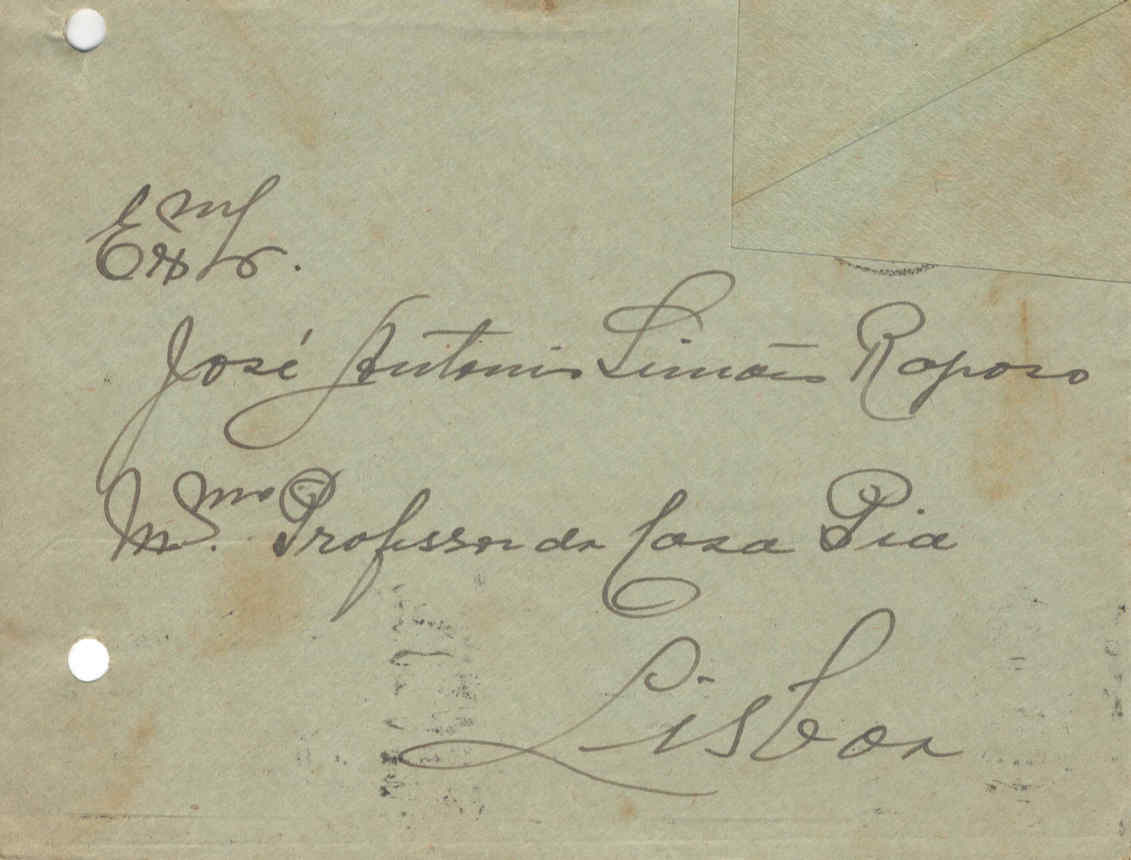 Exmo Sr.
José Antonio Simões Raposo
M.mo Professor da Casa Pia
Lisboa